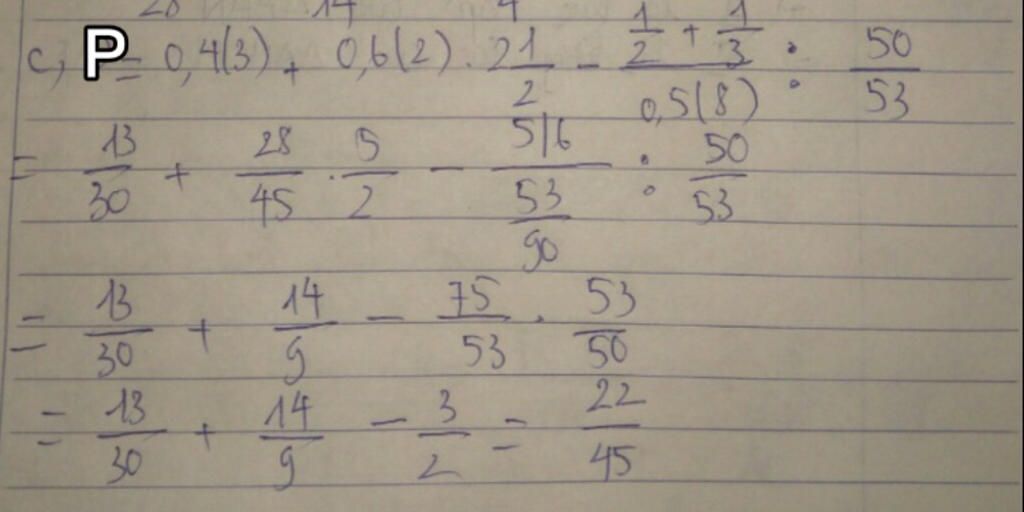 28 14 4
c, P = 0,4(3) + 0,6(2) . 2 1/2 - (1/2 + 1/3)/(0,5(8)) : 50/53
= 13/30 + 28/45 . 5/2 - (5/6)/(53/90) : 50/53
= 13/30 + 14/9 - 75/53 . 53/50
= 13/30 + 14/9 - 3/2 = 22/45